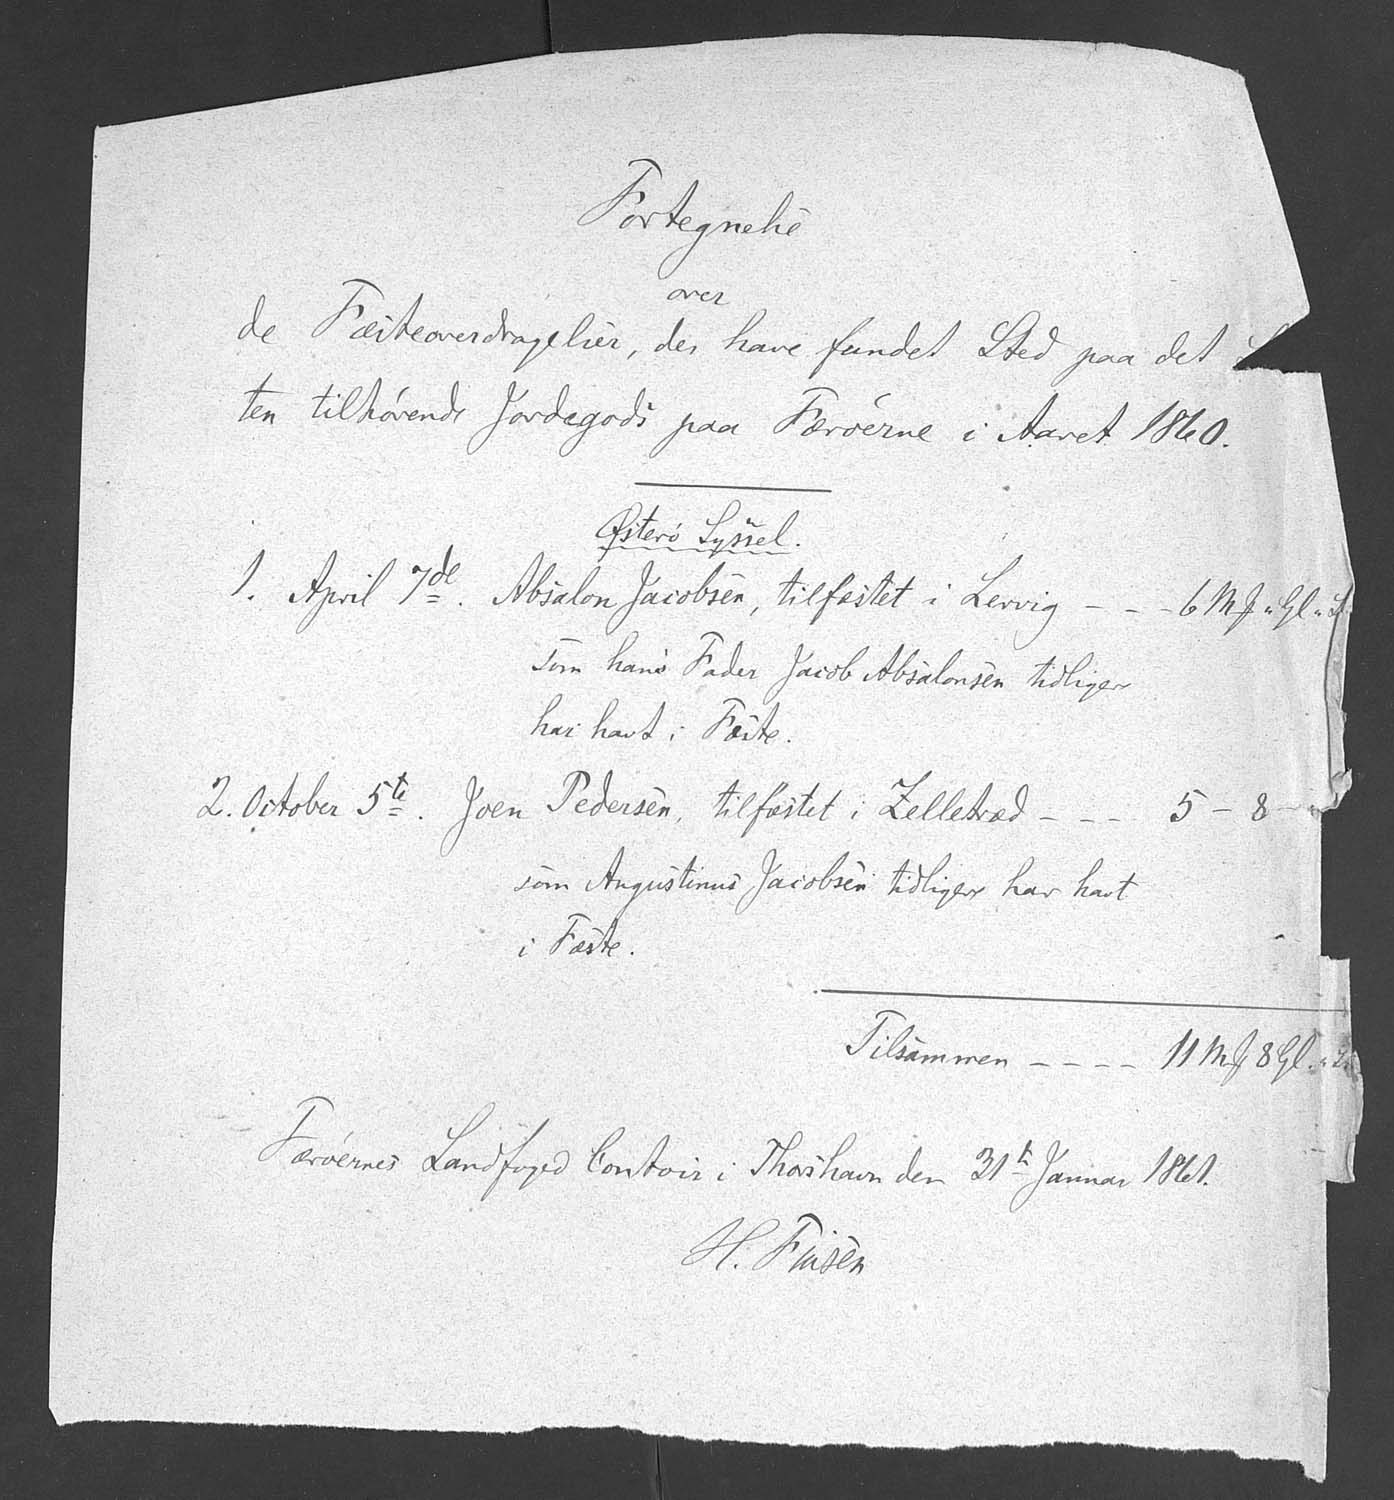 Fortegnelse
over
de Fæsteoverdragelser, der have fundet Sted paa det
ten tilhørende Jordegods paa Færøerne i Aaret 1860.
Østerø Syssel.
1. April 7de. Absalon Jacobsen, tilfæstet i Lervig - - - 6 Mk " Gl. "
som hans Fader Jacob Absalonsen tidligere
har havt i Fæste.
2. October 5te. Joen Pedersen, tilfæstet i Zelletræd - - - 5 - 8 -
som Augustinus Jacobsen tidligere har havt
i Fæste.
Tilsammen - - - - 11 Mk 8 Gl. "
Færøernes Landfoged Contoir i Thorshavn den 31te Januar 1861.
H. Finsen